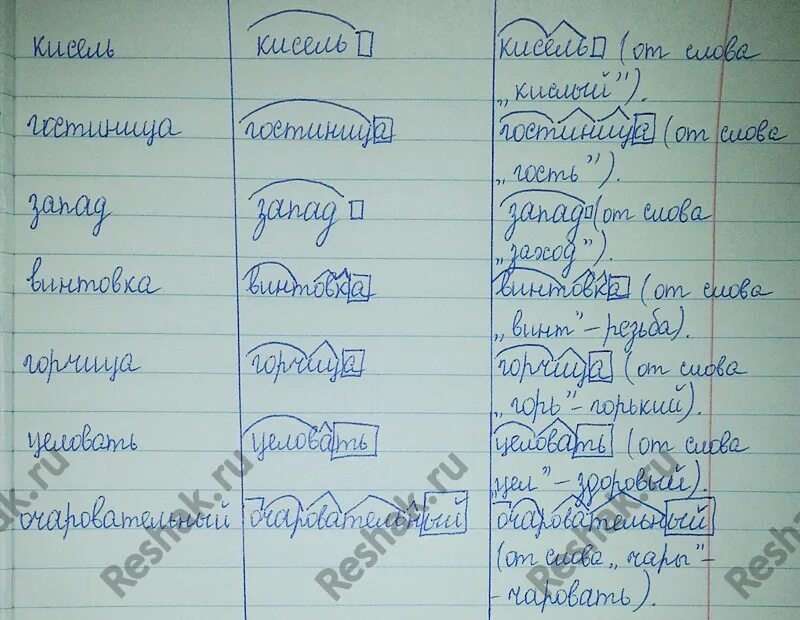 кисель кисель кисель (от слова
„кислый").
гостиница гостиница гостиница (от слова
„гость").
запад запад запад (от слова
„заход").
винтовка винтовка винтовка (от слова
„винт" - резьба).
горчица горчица горчица (от слова
„горь" - горький).
целовать целовать целовать (от слова
„цел" - здоровый).
очаровательный очаровательный очаровательный
(от слова „чары" -
- чаровать).
ak.ru
Reshak.ru
Reshak.ru
Reshak.ru